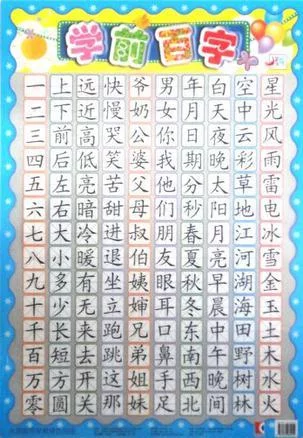 学前百字
一上远快爷男年白空星
二下近慢奶女月天中光
三前高哭公你日夜云风
四后低笑婆我期晚彩雨
五左亮苦父他星太草雷
六右暗甜母们秒阳地电
七大冷进叔朋春月江冰
八小暖退伯友夏亮河雪
九多有坐姨眼秋早海金
十少无立婶耳冬晨山土
千长来跑兄口东上田木
百短去跳弟鼻南午野水
万方开这姐手西晚树火
零圆关那妹足北间林